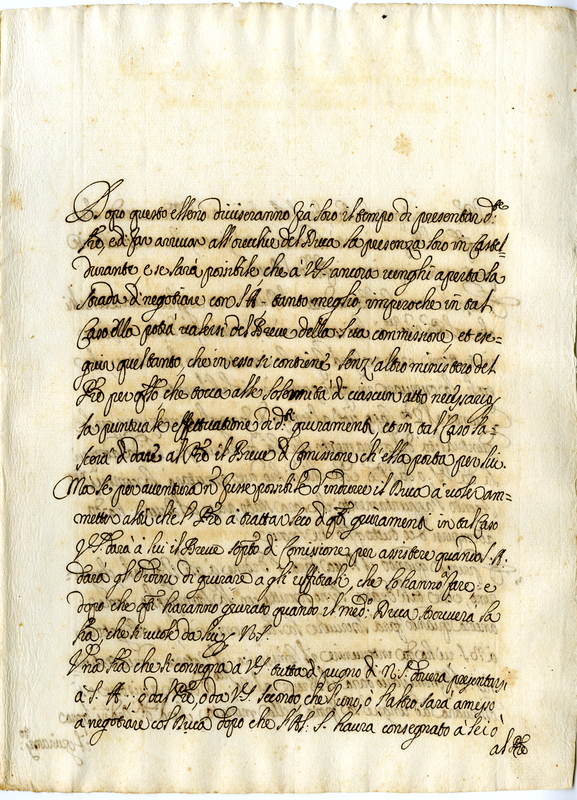 Dopo questo elleno diviseranno frà loro il tempo di presentar d.º
Pre, ed far arrivar all'orecchie del Duca la presenza loro in Castel=
durante e se sarà possibile che à V.S. ancora venghi aperta la
strada di negotiare con S.A. tanto meglio, imperoche in tal
Caso ella potrà valersi del Breve della sua commissione, et ese=
guir quel tanto, che in esso si contiene senz'altro ministero del
Pre per qto che tocca alle solennità di ciascun atto necessarie
la puntuale effettuatione di d.i giuramenti et in tal Caso la=
scerà di dare al Pre il Breve di Comissione ch'ella porta per lui.
Ma se per aventura nō fusse possibile d'indurre il Duca à voler am=
metter altri che l' Pre a trattar seco di qti giuramenti in tal Caso
V.S. darà à lui il Breve sopto di Comissione per assistere quando S.A.
darà gl'ordini di giurare a gli uffitiali, che lo hanno à fare e
dopo che qti haranno giurato quando il med.º Duca scriverà la
lra, che si vuole da lui N.S.
Una lra che si consegna à V.S. tutta di pugno di N.S. doverà presentarsi
à S.A., ò dal Pre, ò da V.S. secondo che l'uno, ò l'altro sarà amesso
à negotiare col Duca dopo che l'A.S. haura consegnato à lei ò
al Pre